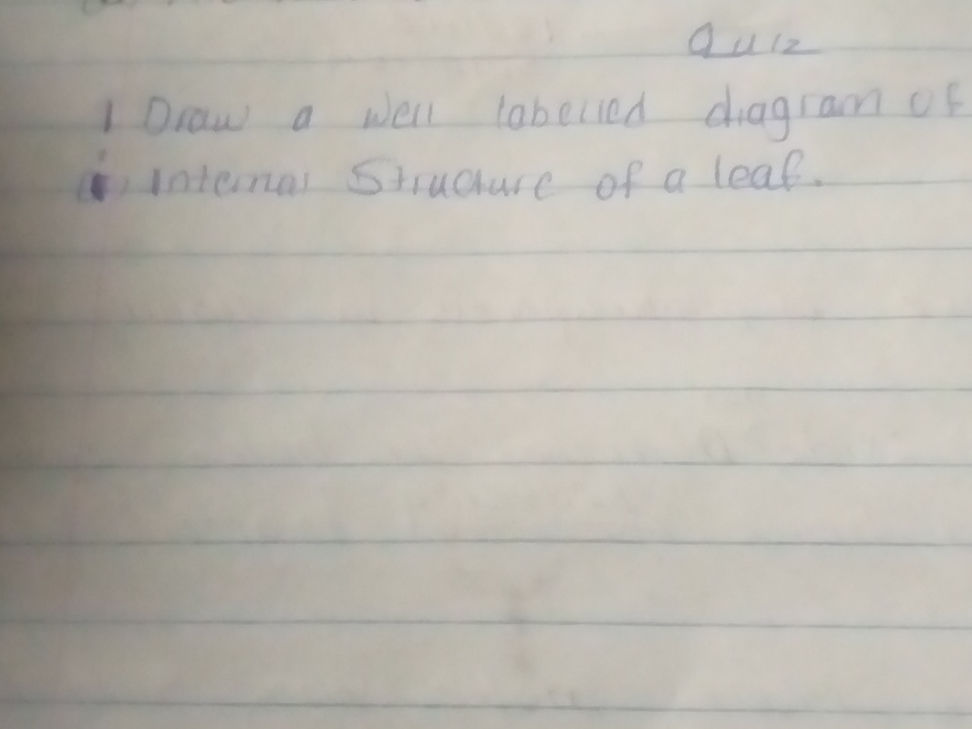 Quiz
1 Draw a well labelled diagram of
i) internal structure of a leaf.